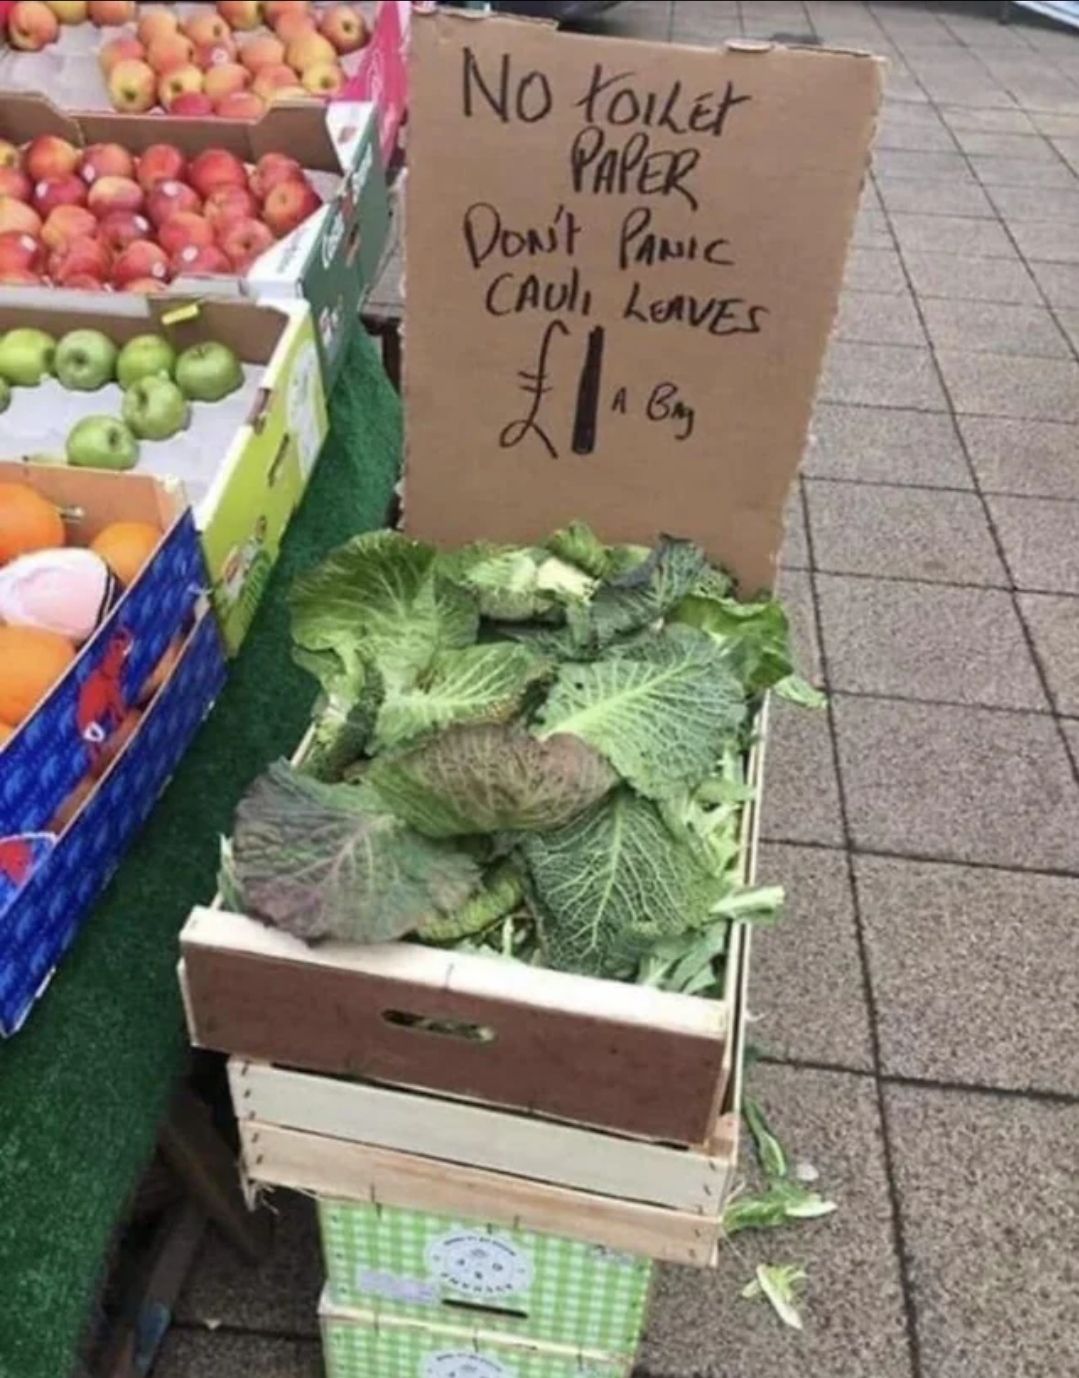 No toilet
PAPER
DON't PANIC
CAuli LEAVES
£1 A Bag